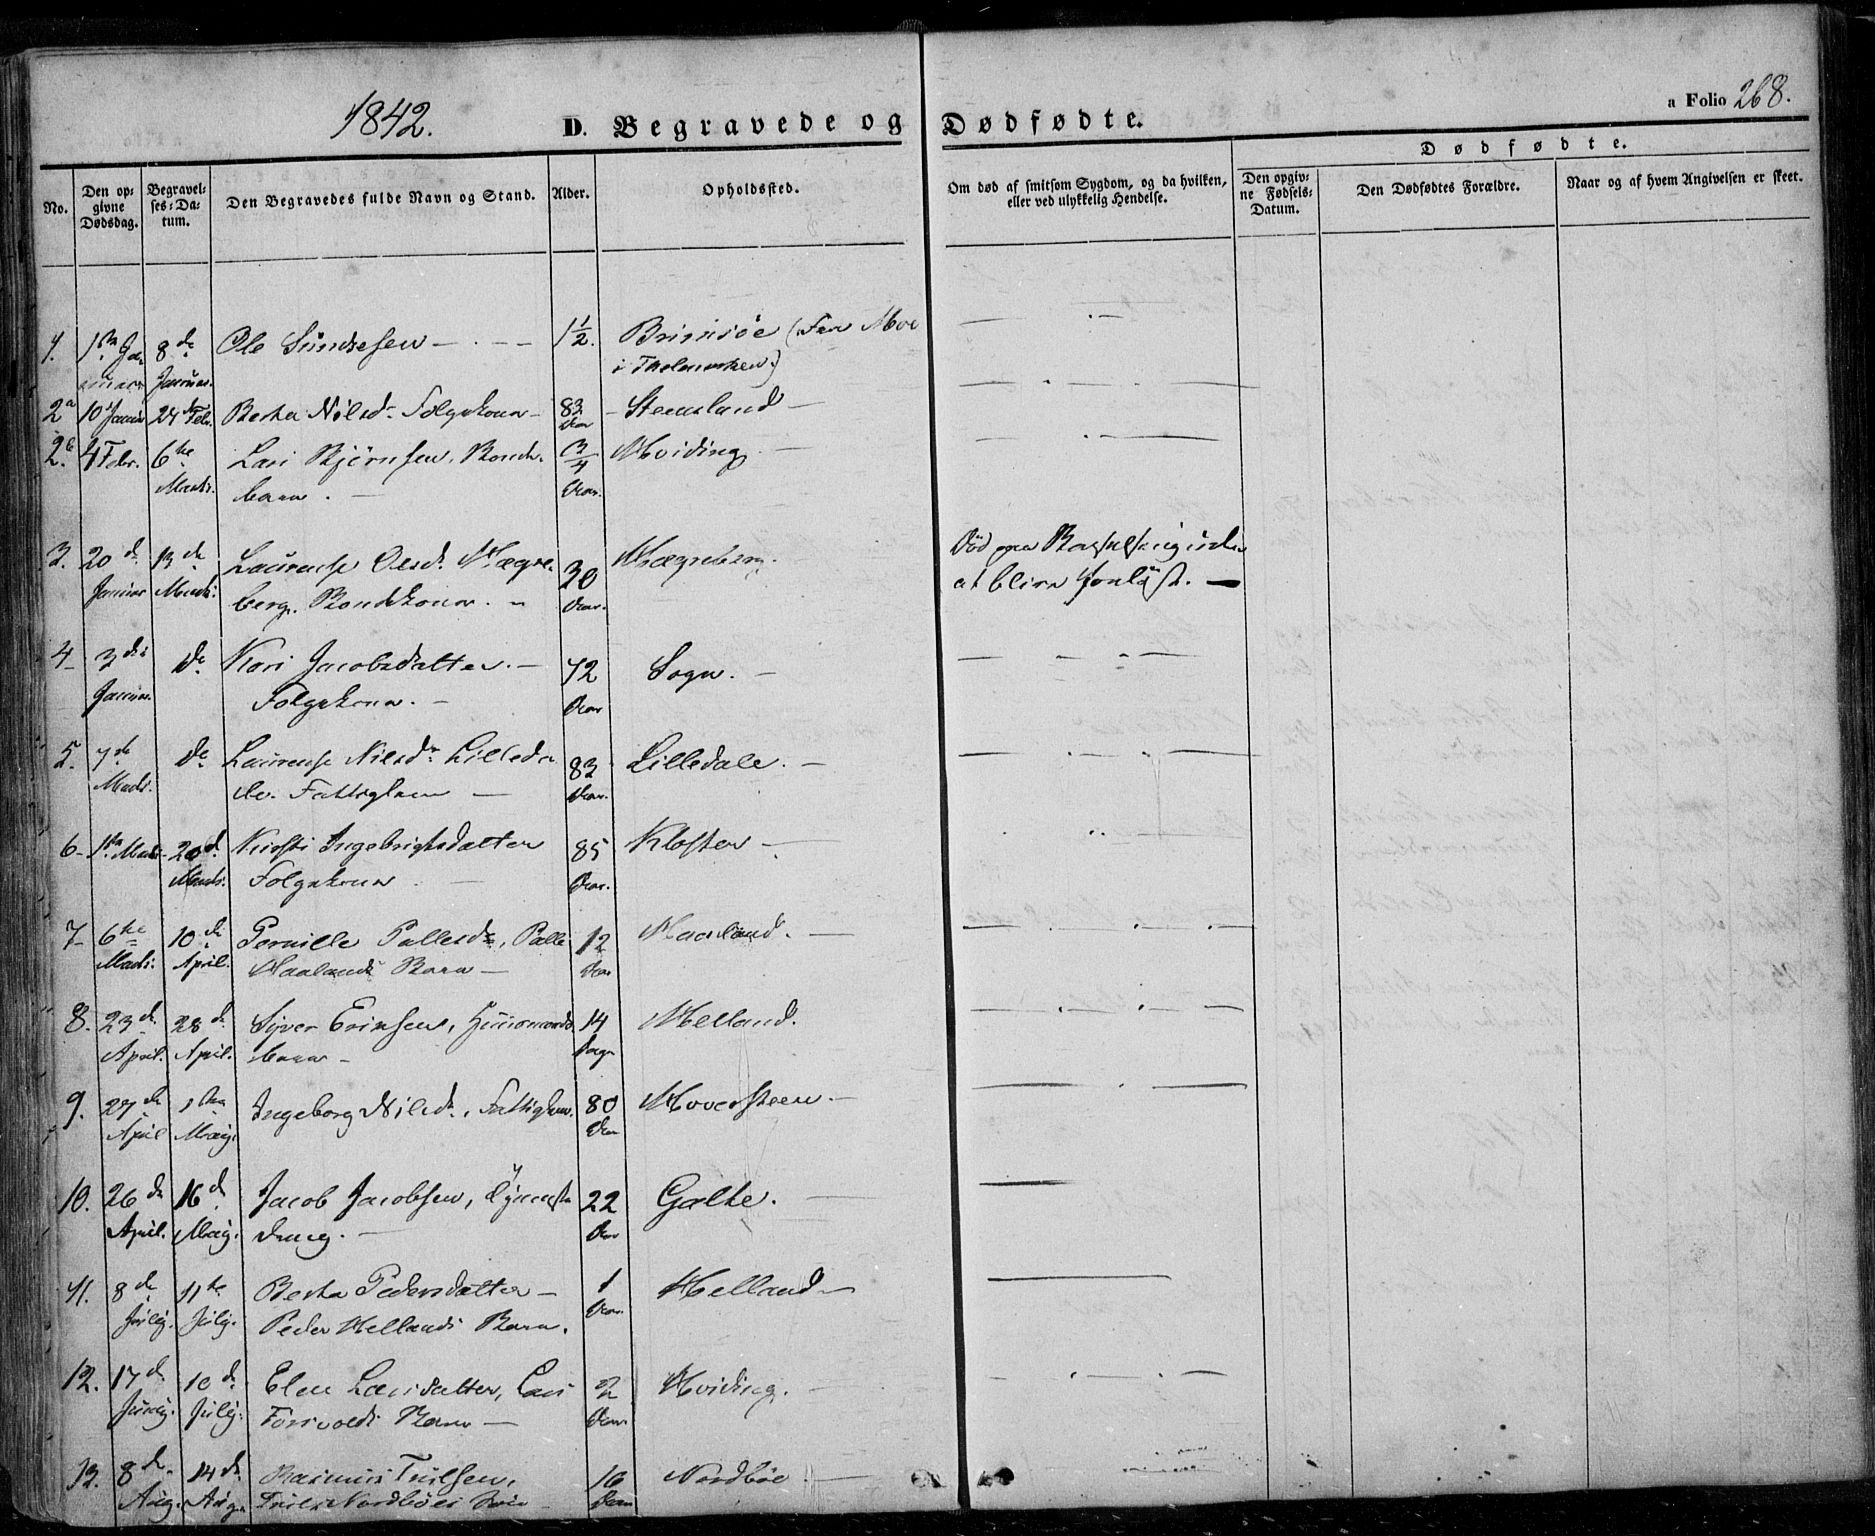 1842. D. Begravede og Dødfødte. a Folio 268.
Dødfødte.
No. Den opgivne Dødsdag. Begravelses-Datum. Den Begravedes fulde Navn og Stand. Alder. Opholdssted. Om død af smitsom Sygdom, og da hvilken, eller ved ulykkelig Hendelse. Den opgivne Fødsels-Datum. Den Dødfødtes Forældre. Naar og af hvem Angivelsen er skeet.
1. 1ste Januar 8de Januar. Ole Sundsesen 1½. Brimsøe (Fra Moe
i Thelemarken)
2a 10 Januar 24de Febr. Berta Nilsd. Folgekone 83 Aar Steensland
2b. 4 Febr. 6te Marts. Lars Bjørnsen, Bonde-
barn. 3/4 Aar. Hviding
3. 20de Januar 13de Marts. Laurense Olsd. Hægre-
berg. Bondekone. 30 Aar. Hægreberg. Død paa Barselseng uden
at blive forløst.
4 3die Januar. Do. Kari Jacobsdatter.
Folgekone. 72 Aar Sogn.
5. 7de Marts. Do. Laurense Nilsd. Lilleda-
le. Fattiglem 83 Aar. Lilledale.
6 1ste Marts 20de Marts. Kirsti Ingebrigtsdatter
Folgekone 85 Aar. Kloster
7 6te Marts. 10de April. Pernille Pallesd., Palle
Haalands Barn 12 Aar Haaland.
8. 23de April. 28de April. Siver Erinsen, Huusmands-
barn 14 Dage Helland.
9. 27de April 1ste Maij. Ingeborg Nilsd., Fattiglem. 80 Aar Hoversteen
10. 26de April. 16de Maij. Jacob Jacobsen, Tjeneste-
dreng. 22 Aar Galte.
11. 8de Julij. 11te Julij. Berta Pedersdatter
Peder Hellands Barn. 1 Aar. Helland
12. 17de Junij. 10de Julij. Elen Larsdatter, Lars
Torsvolds Barn 2 Aar. Hviding.
13. 8de Aug. 14de Aug. Rasmus Trulsen,
Truls Nordbøes Søn 16 Aar Nordbøe